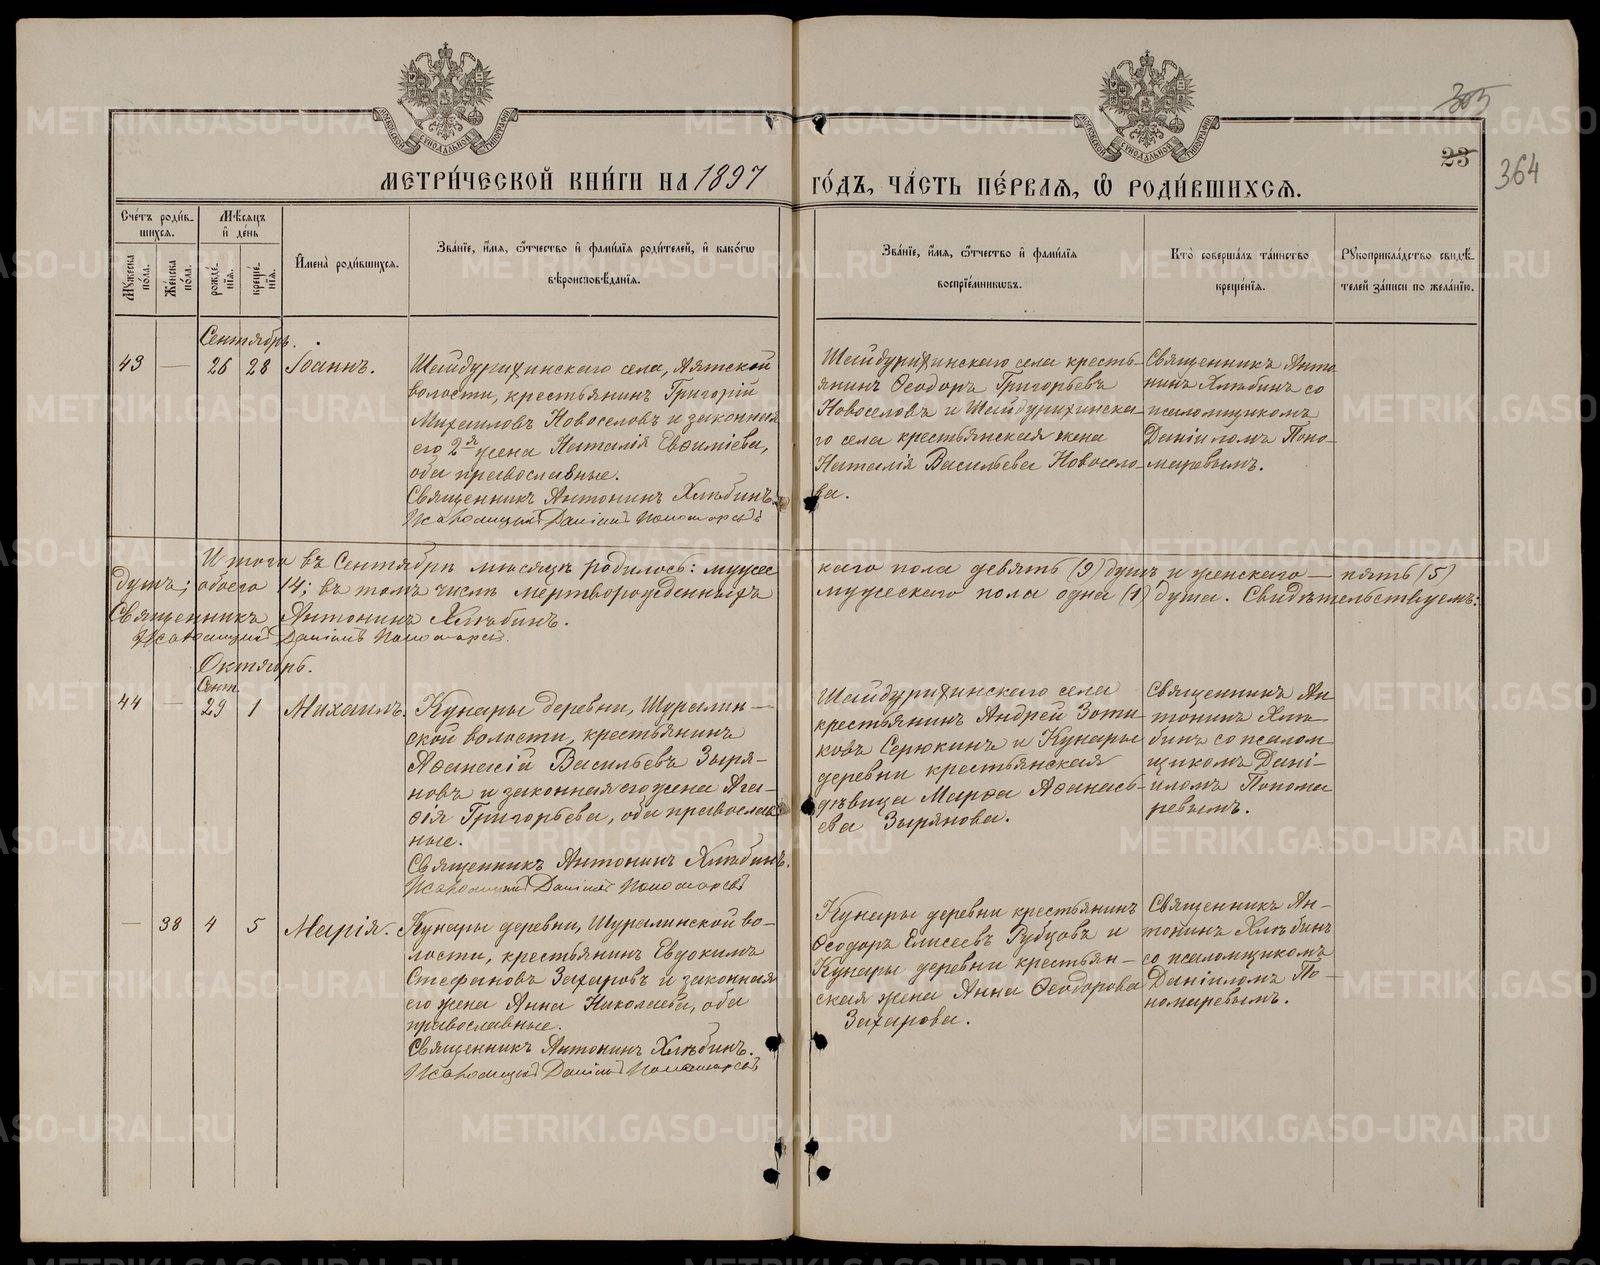 МЕТРИ́ЧЕСКОЙ КНИ́ГИ НА 1897 ГО́ДЪ, ЧА́СТЬ ПЕ́РВАЯ, Ѽ РОДИ́ВШИХСЯ.
305
23
364
Сче́тъ роди́в-
шихся.
Мѣ́сяцъ
и҆ де́нь
Му́жеска
по́ла.
Же́нска
по́ла.
рожде́-
нїя.
креще́-
нїя.
И҆мена̀ роди́вшихся.
Зва́нїе, и҆́мя, ѻ҆́тчество и҆ фами́лїя роди́телей, и҆ како́гѡ
вѣроисповѣ́данїя.
Зва́нїе, и҆́мя, ѻ҆́тчество и҆ фами́лїя
воспрїе́мникѡвъ.
Кто̀ соверша́лъ та́инство
креще́нїя.
Рꙋкоприкла́дство свидѣ́-
телей за́писи по жела́нїю.
Сентябрь.
43 — 26 28 Іоаннъ.
Шайдурихинскаго села, Аятской
волости, крестьянинъ Григорій
Михаиловъ Новоселовъ и законная
его 2я жена Наталія Евѳиміева,
оба православные.
Священникъ Антонинъ Хлѣбинъ.
Псаломщикъ Даніилъ Пономаревъ
Шайдурихинскаго села кресть-
янинъ Ѳеодоръ Григорьевъ
Новоселовъ и Шайдурихинска-
го села крестьянская жена
Наталія Васильева Новосело-
ва.
Священникъ Анто
нинъ Хлѣбинъ со
псаломщикомъ
Даніиломъ Поно-
маревымъ.
Итого въ Сентябрѣ мѣсяцѣ родилось: мужес каго пола девять (9) душъ и женскаго — пять (5)
душъ; обоего 14; въ томъ числѣ мертворожденныхъ мужескаго пола одна (1) душа. Свидѣтельствуемъ:
Священникъ Антонинъ Хлѣбинъ.
Псаломщикъ Даніилъ Пономаревъ.
Октябрь.
Сент.
44 — 29 1 Михаилъ.
Кунары деревни, Шуралин-
ской волости, крестьянинъ
Аѳанасій Васильевъ Зыря-
новъ и законная его жена Ага-
ѳія Григорьева, оба православ
ные.
Священникъ Антонинъ Хлѣбинъ.
Псаломщикъ Даніилъ Пономаревъ
Шайдурихинскаго села
крестьянинъ Андрей Зоти-
ковъ Серюкинъ и Кунары
деревни крестьянская
дѣвица Марѳа Аѳанась-
ева Зырянова.
Священникъ Ан
тонинъ Хлѣ-
бинъ со псалом
щикомъ Дані-
иломъ Понома
ревымъ.
— 38 4 5 Марія.
Кунары деревни, Шуралинской во-
лости, крестьянинъ Евдокимъ
Стефановъ Захаровъ и законная
его жена Анна Николаева, оба
православные.
Священникъ Антонинъ Хлѣбинъ.
Псаломщикъ Даніилъ Пономаревъ
Кунары деревни крестьянинъ
Ѳеодоръ Елисеевъ Рубцовъ и
Кунары деревни крестьян-
ская жена Анна Ѳеодорова
Захарова.
Священникъ Ан-
тонинъ Хлѣбинъ
со псаломщикомъ
Даніиломъ По-
номаревымъ.